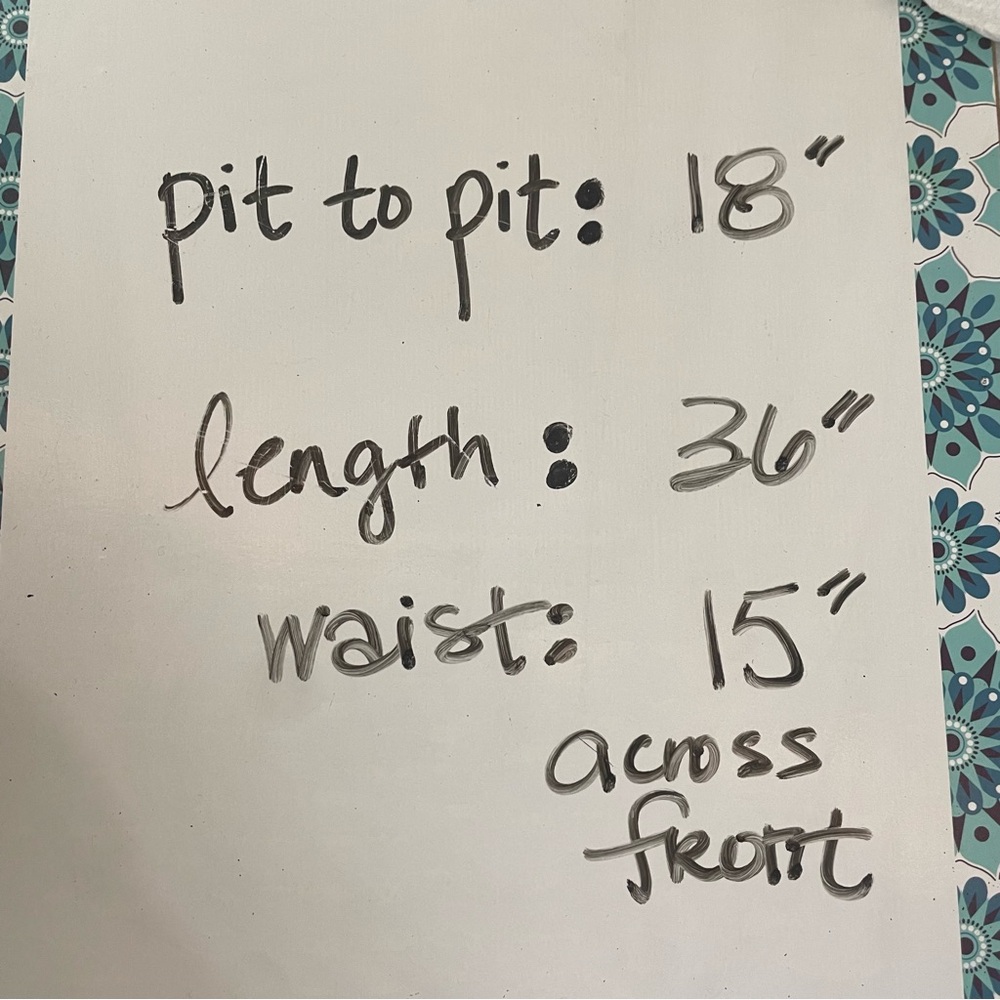 pit to pit: 18"
length: 36"
waist: 15"
across
front